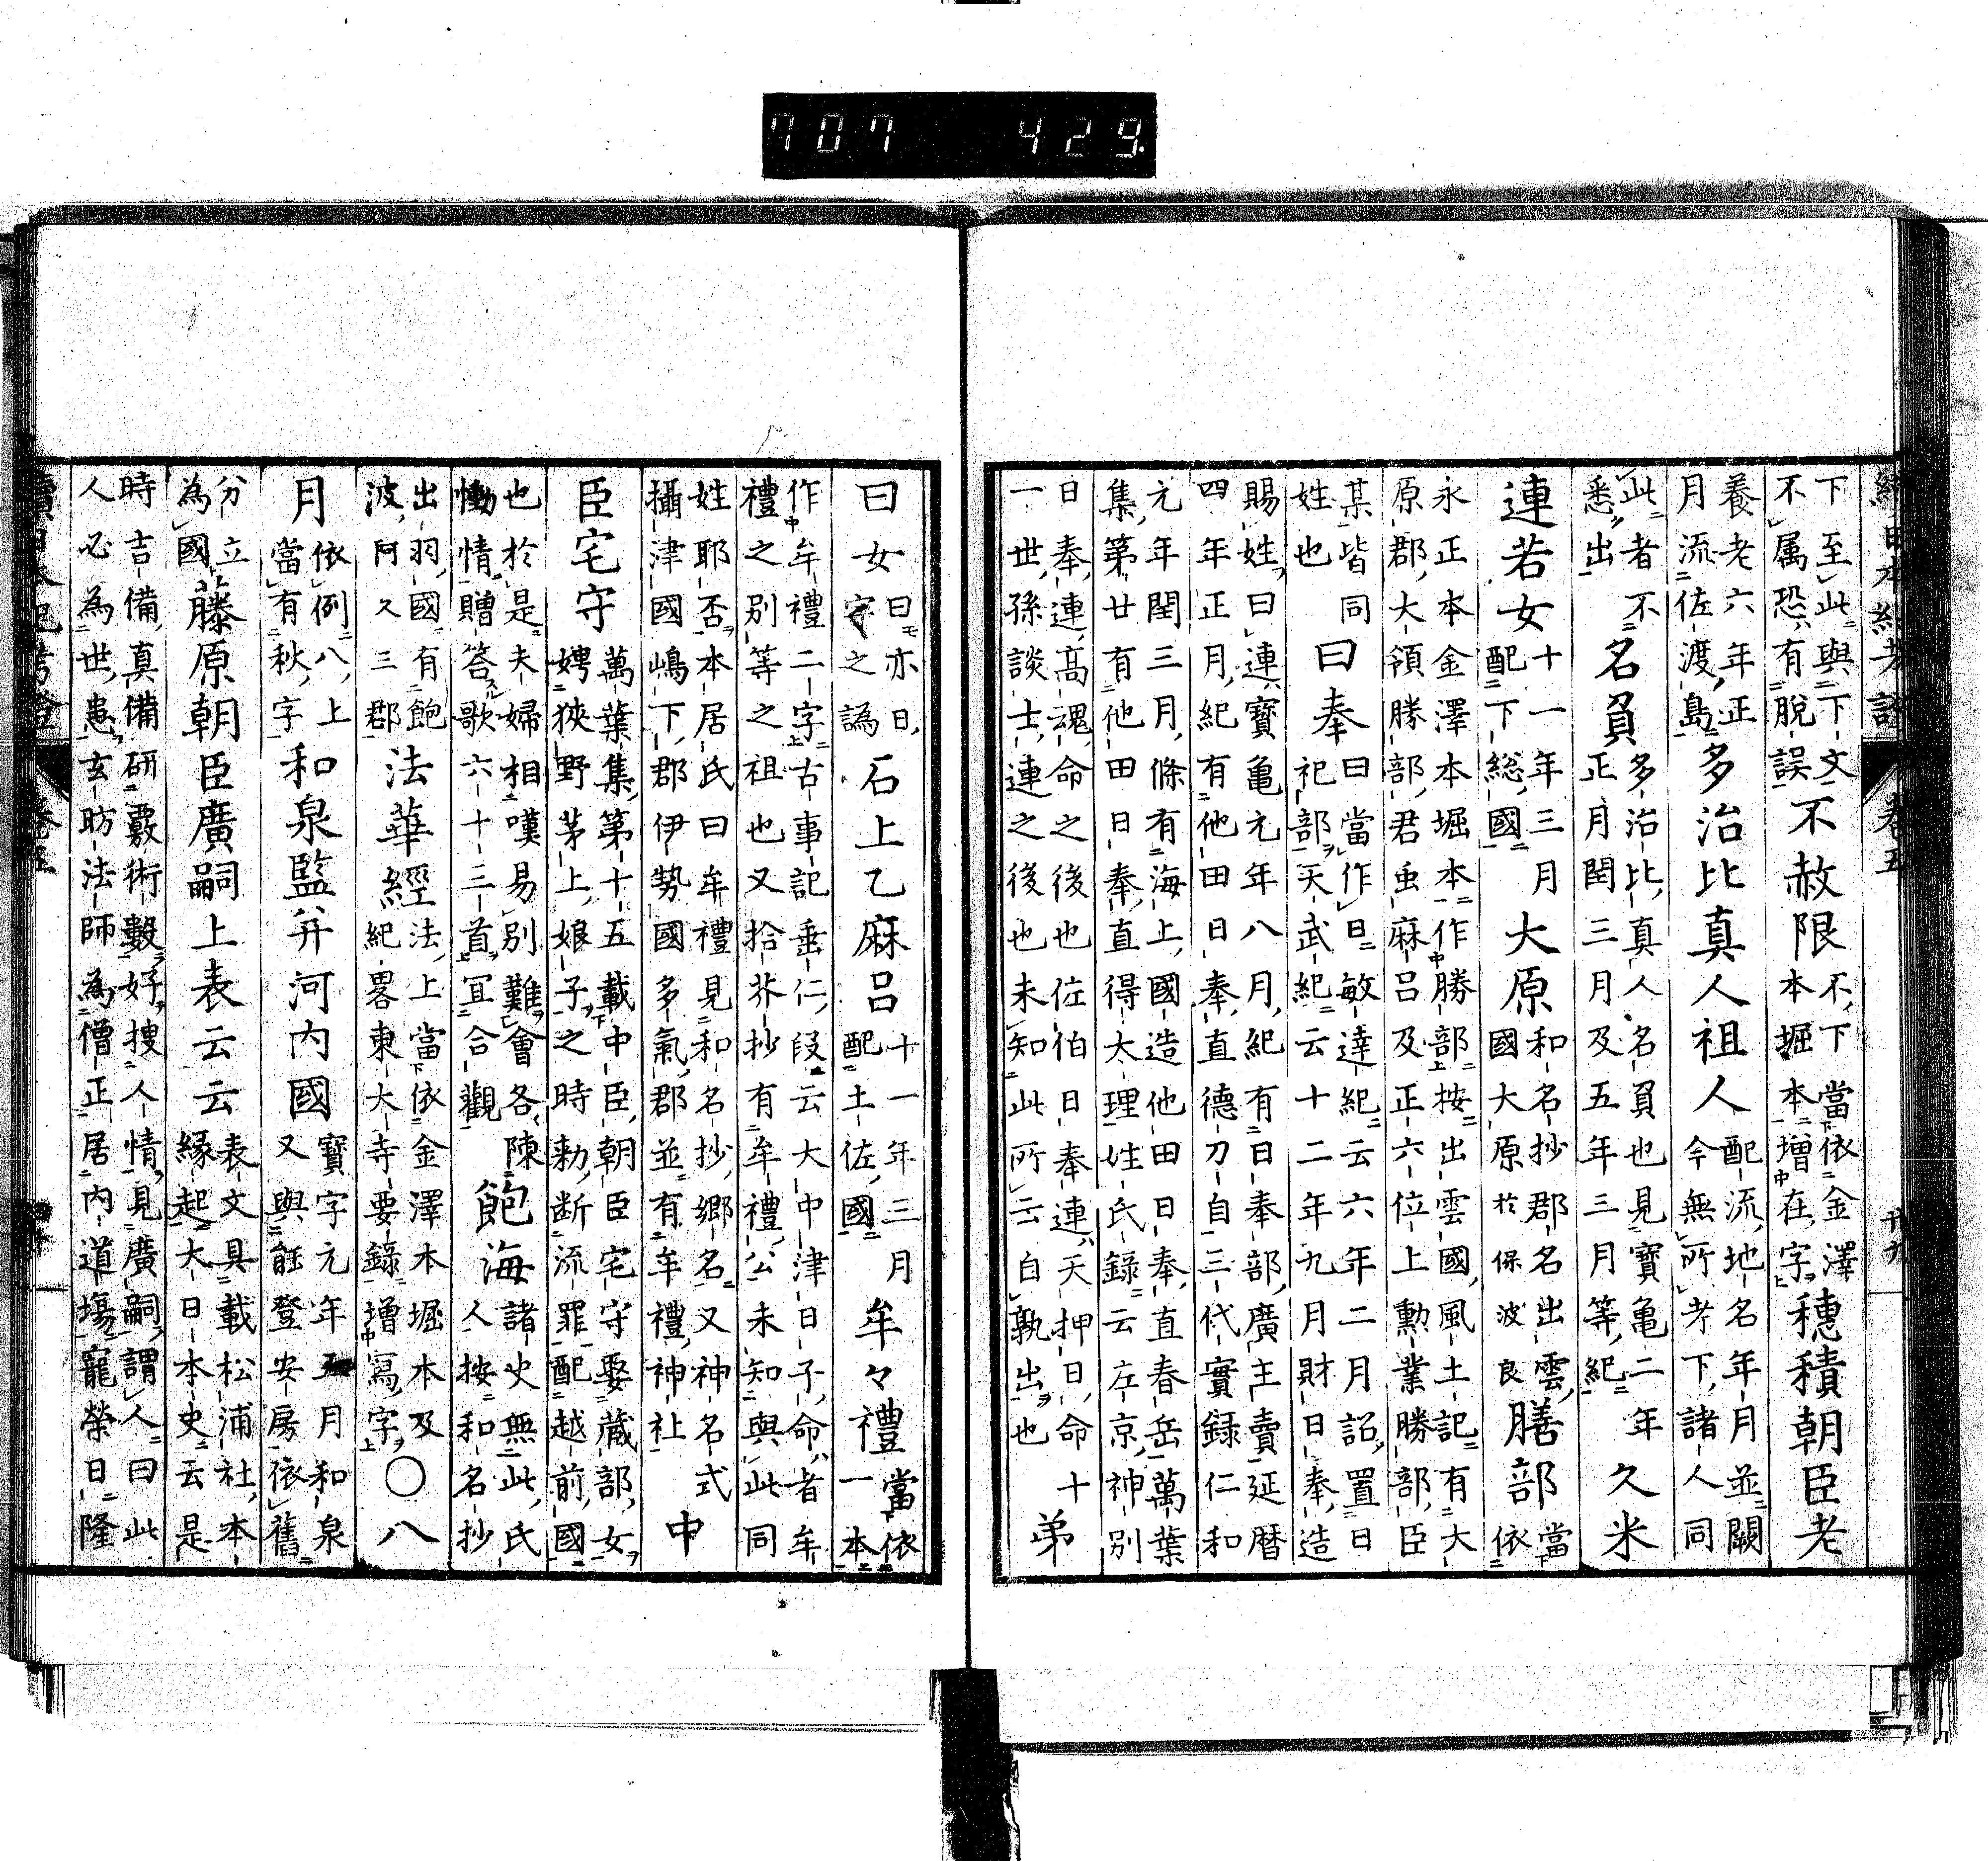 707 429
續日本紀考證 卷五 廿六
下至此與下文
不属恐有脱誤
不赦限
不下當依金澤
本堀本増在字
穗積朝臣老
養老六年正
月流佐渡島
多治比真人祖人
配流地名年月並闕
今無所考下諸人同
此者不
悉出
名負
多治比真人名負也見寶亀二年
正月閏三月及五年三月等紀
久米
連若女
十一年三月
配下総國
大原
和名抄郡名出雲
國大原於保波良
膳部
當
依
永正本金澤本堀本作勝部按出雲國風土記有大
原郡大領勝部君虫麻呂及正六位上勳業勝部臣
某皆同
姓也
曰奉
曰當作日敏達紀云六年二月詔置日
祀部天武紀云十二年九月財日奉造
賜姓曰連寶亀元年八月紀有日奉部廣主賣延暦
四年正月紀有他田日奉直德刀自三代實録仁和
元年閏三月條有海上國造他田日奉直春岳萬葉
集第廿有他田日奉直得大理姓氏録云左京神別
日奉連高魂命之後也佐伯日奉連天押日命十
一世孫談士連之後也未知此所云自孰出也
弟
曰女
曰亦日
字之譌
石上乙麻呂
十一年三月
配土佐國
牟々禮
當依
一本
作牟禮二字古事記垂仁段云大中津日子命者牟
禮之別等之祖也又拾芥抄有牟禮公未知與此同
姓耶否本居氏曰牟禮見和名抄郷名又神名式
攝津國嶋下郡伊勢國多氣郡並有牟禮神社
中
臣宅守
萬葉集第十五載中臣朝臣宅守娶蔵部女
娉狹野茅上娘子之時勅断流罪配越前國
也於是夫婦相嘆易別難會各陳
慟情贈答歌六十三首冝合觀
飽海
諸史無此氏
人按和名抄
出羽國有飽
波阿久三郡
法華經
法上當依金澤本堀本及
紀畧東大寺要録増寫字
〇八
月
依例八上
當有秋字
和泉監并河内國
寶字元年五月和泉
又與能登安房依舊
分立
為國
藤原朝臣廣嗣上表云云
表文具載松浦社本
緣起大日本史云是
時吉備真備研覈術數好捜人情見廣嗣謂人曰此
人必為世患玄昉法師為僧正居内道塲寵榮日隆
續日本紀考證 卷五